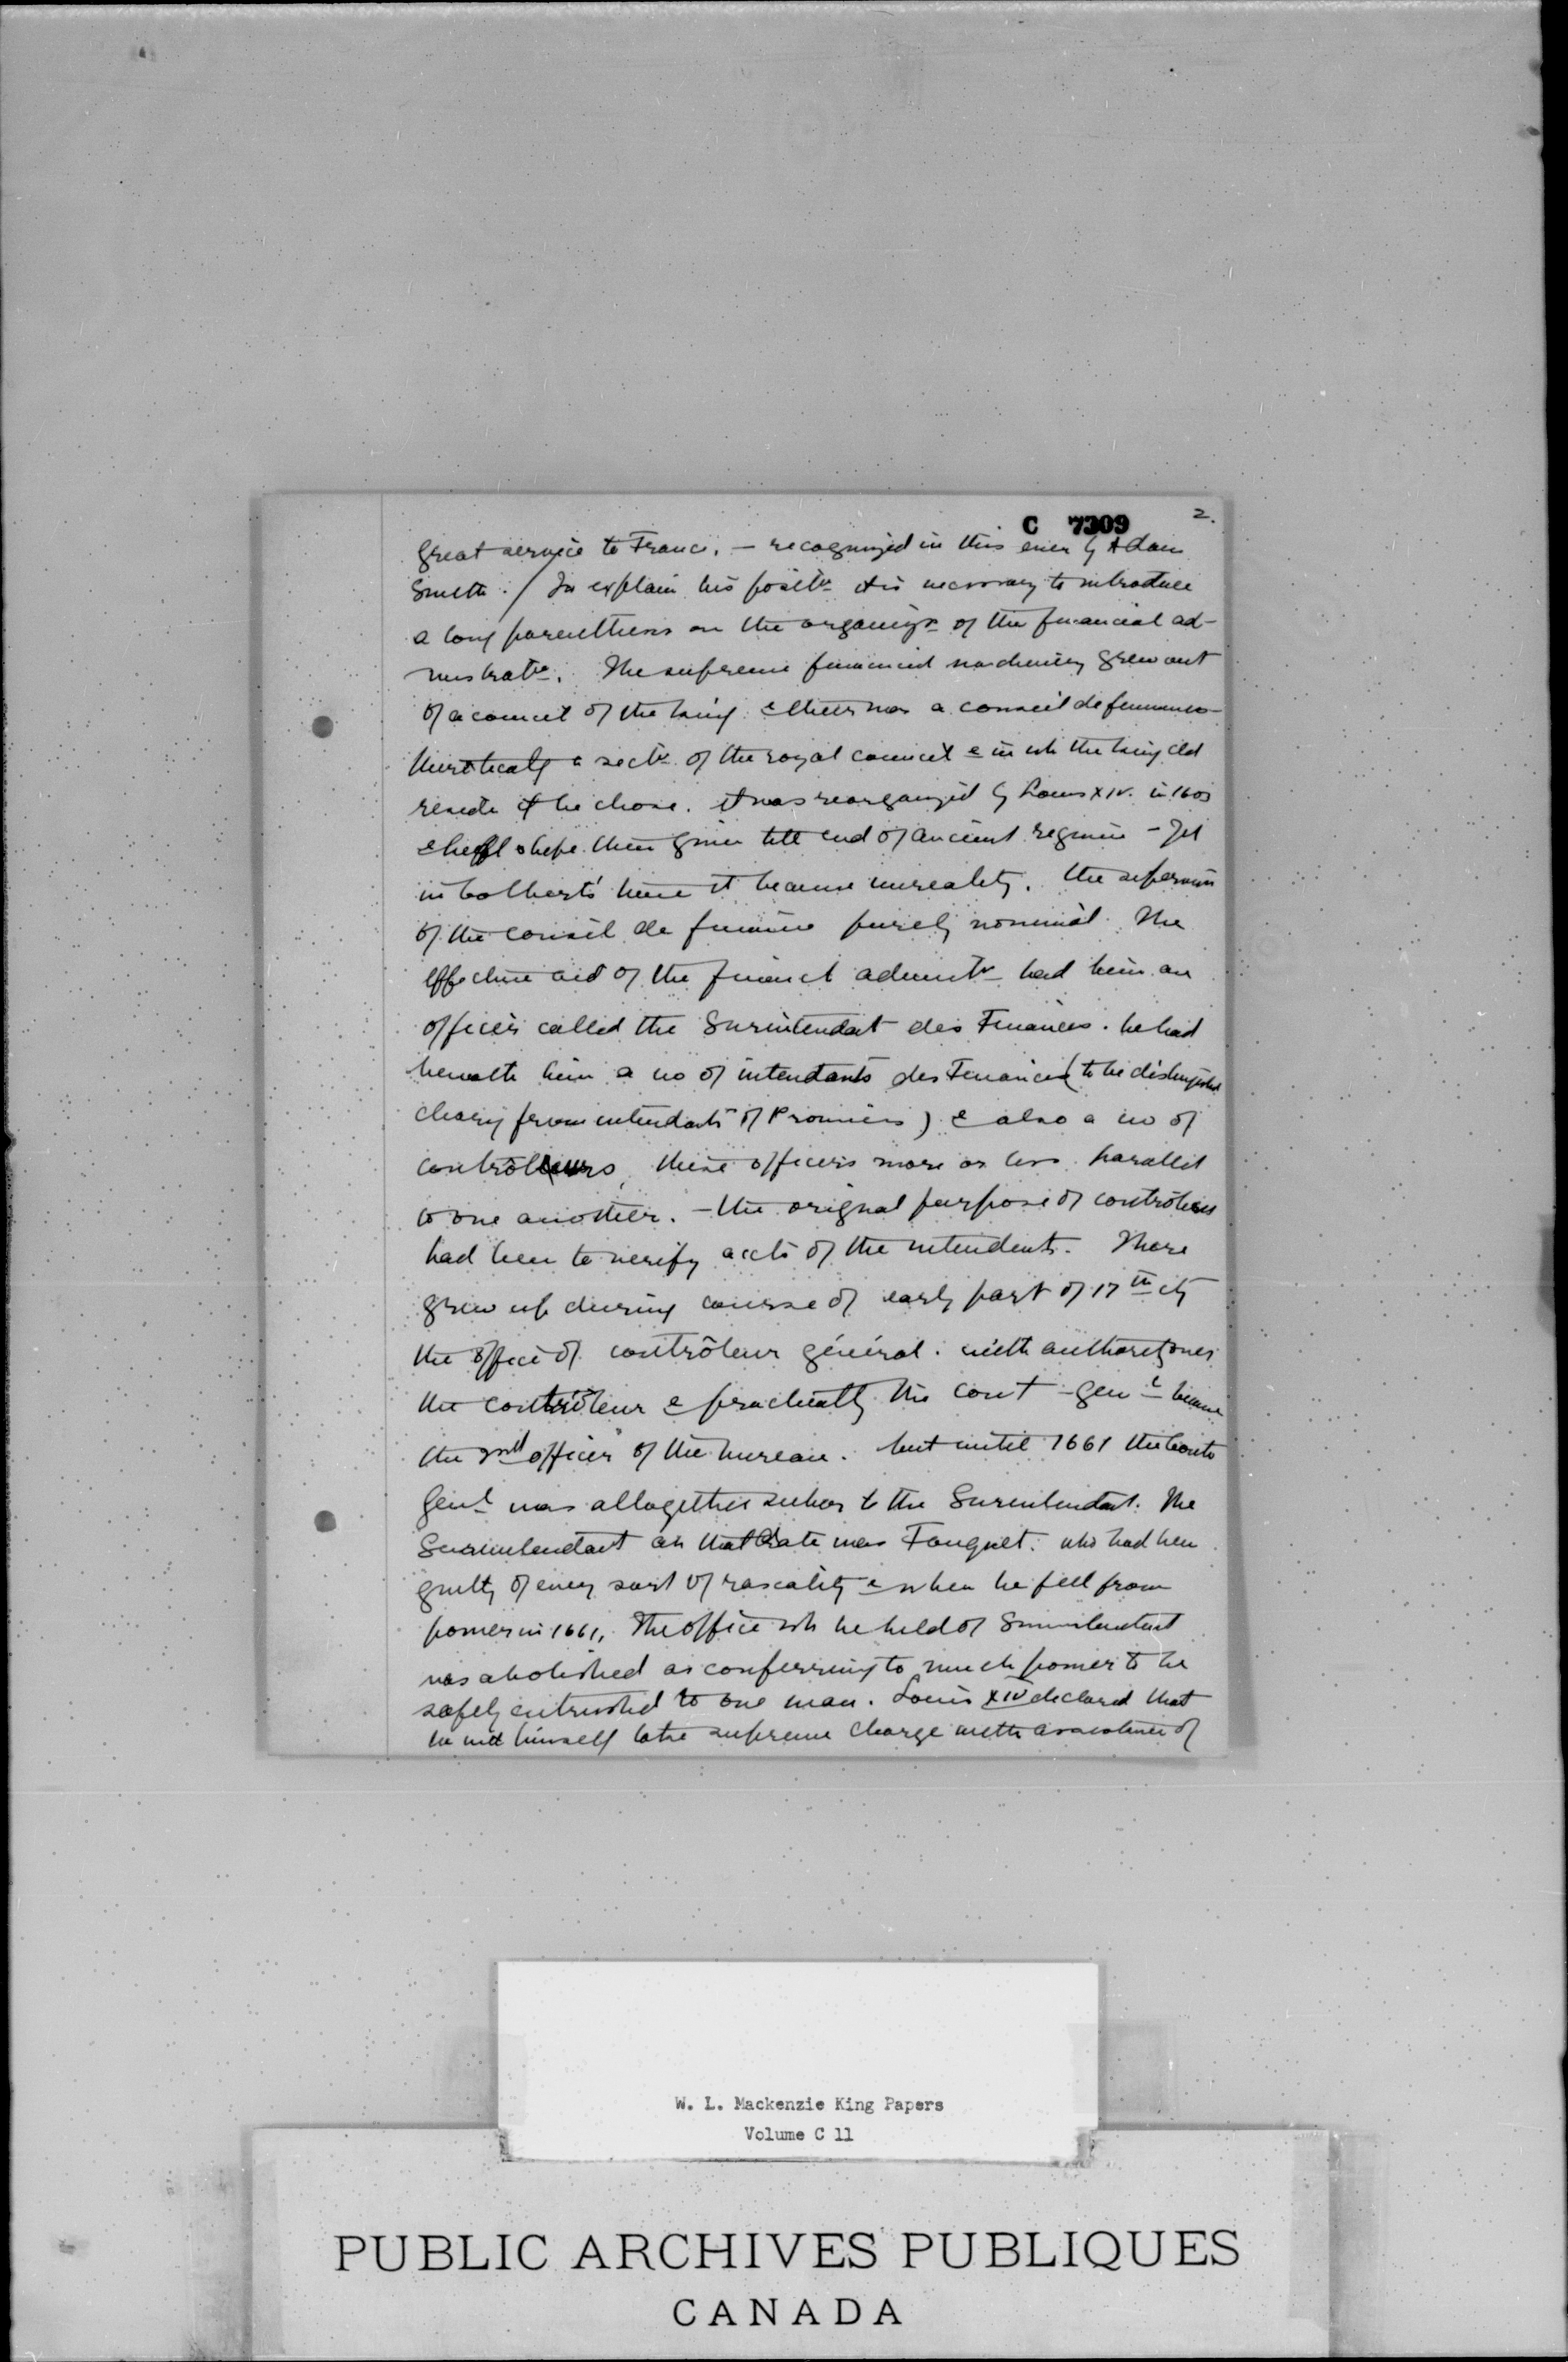 C 7309
2.
great service to France. — recognized in this even by Adam
Smith. / To explain his positn it is necessary to introduce
a long parenthesis on the organizn of the financial ad-
ministratn. The supreme financial machinery grew out
of a council of the king & there was a conseil de finances
theoretically a sectn of the royal council & in wh the king cld
preside if he chose. it was reorganized by Louis XIV. in
& kept shape then given till end of ancient regime - Yet
in Colbert's time it became unreality. the supervision
of the conseil de finance purely nominal. The
effective aid of the financl administn had been an
officer called the Surintendat des Finances. he had
beneath him a no of intendants des Finances (to be distinguished
from intendants of Provinces) & also a no of
controlleurs, these officers more or less parallel
to one another. - the orignal purpose of contrôleurs
had been to verify accts of the intendents. There
grew up during course of early part of 17th cty
the office of contrôleur général. with authority over
the contrôleur & practically this cont - genl became
the 2nd officer of the bureau. but until 1661 the Contr
Genl was altogether subor to the Surintendant. The
Surintendant at that date was Fouquet. who had been
guilty of every sort of rascality & when he fell from
power in 1661, The office wh he held of Surintendant
was abolished as conferring to much power to be
safely entrusted to one man. Louis XIV declared that
he wld himself take supreme charge with assistance of
W. L. Mackenzie King Papers
Volume C 11
PUBLIC ARCHIVES PUBLIQUES
CANADA